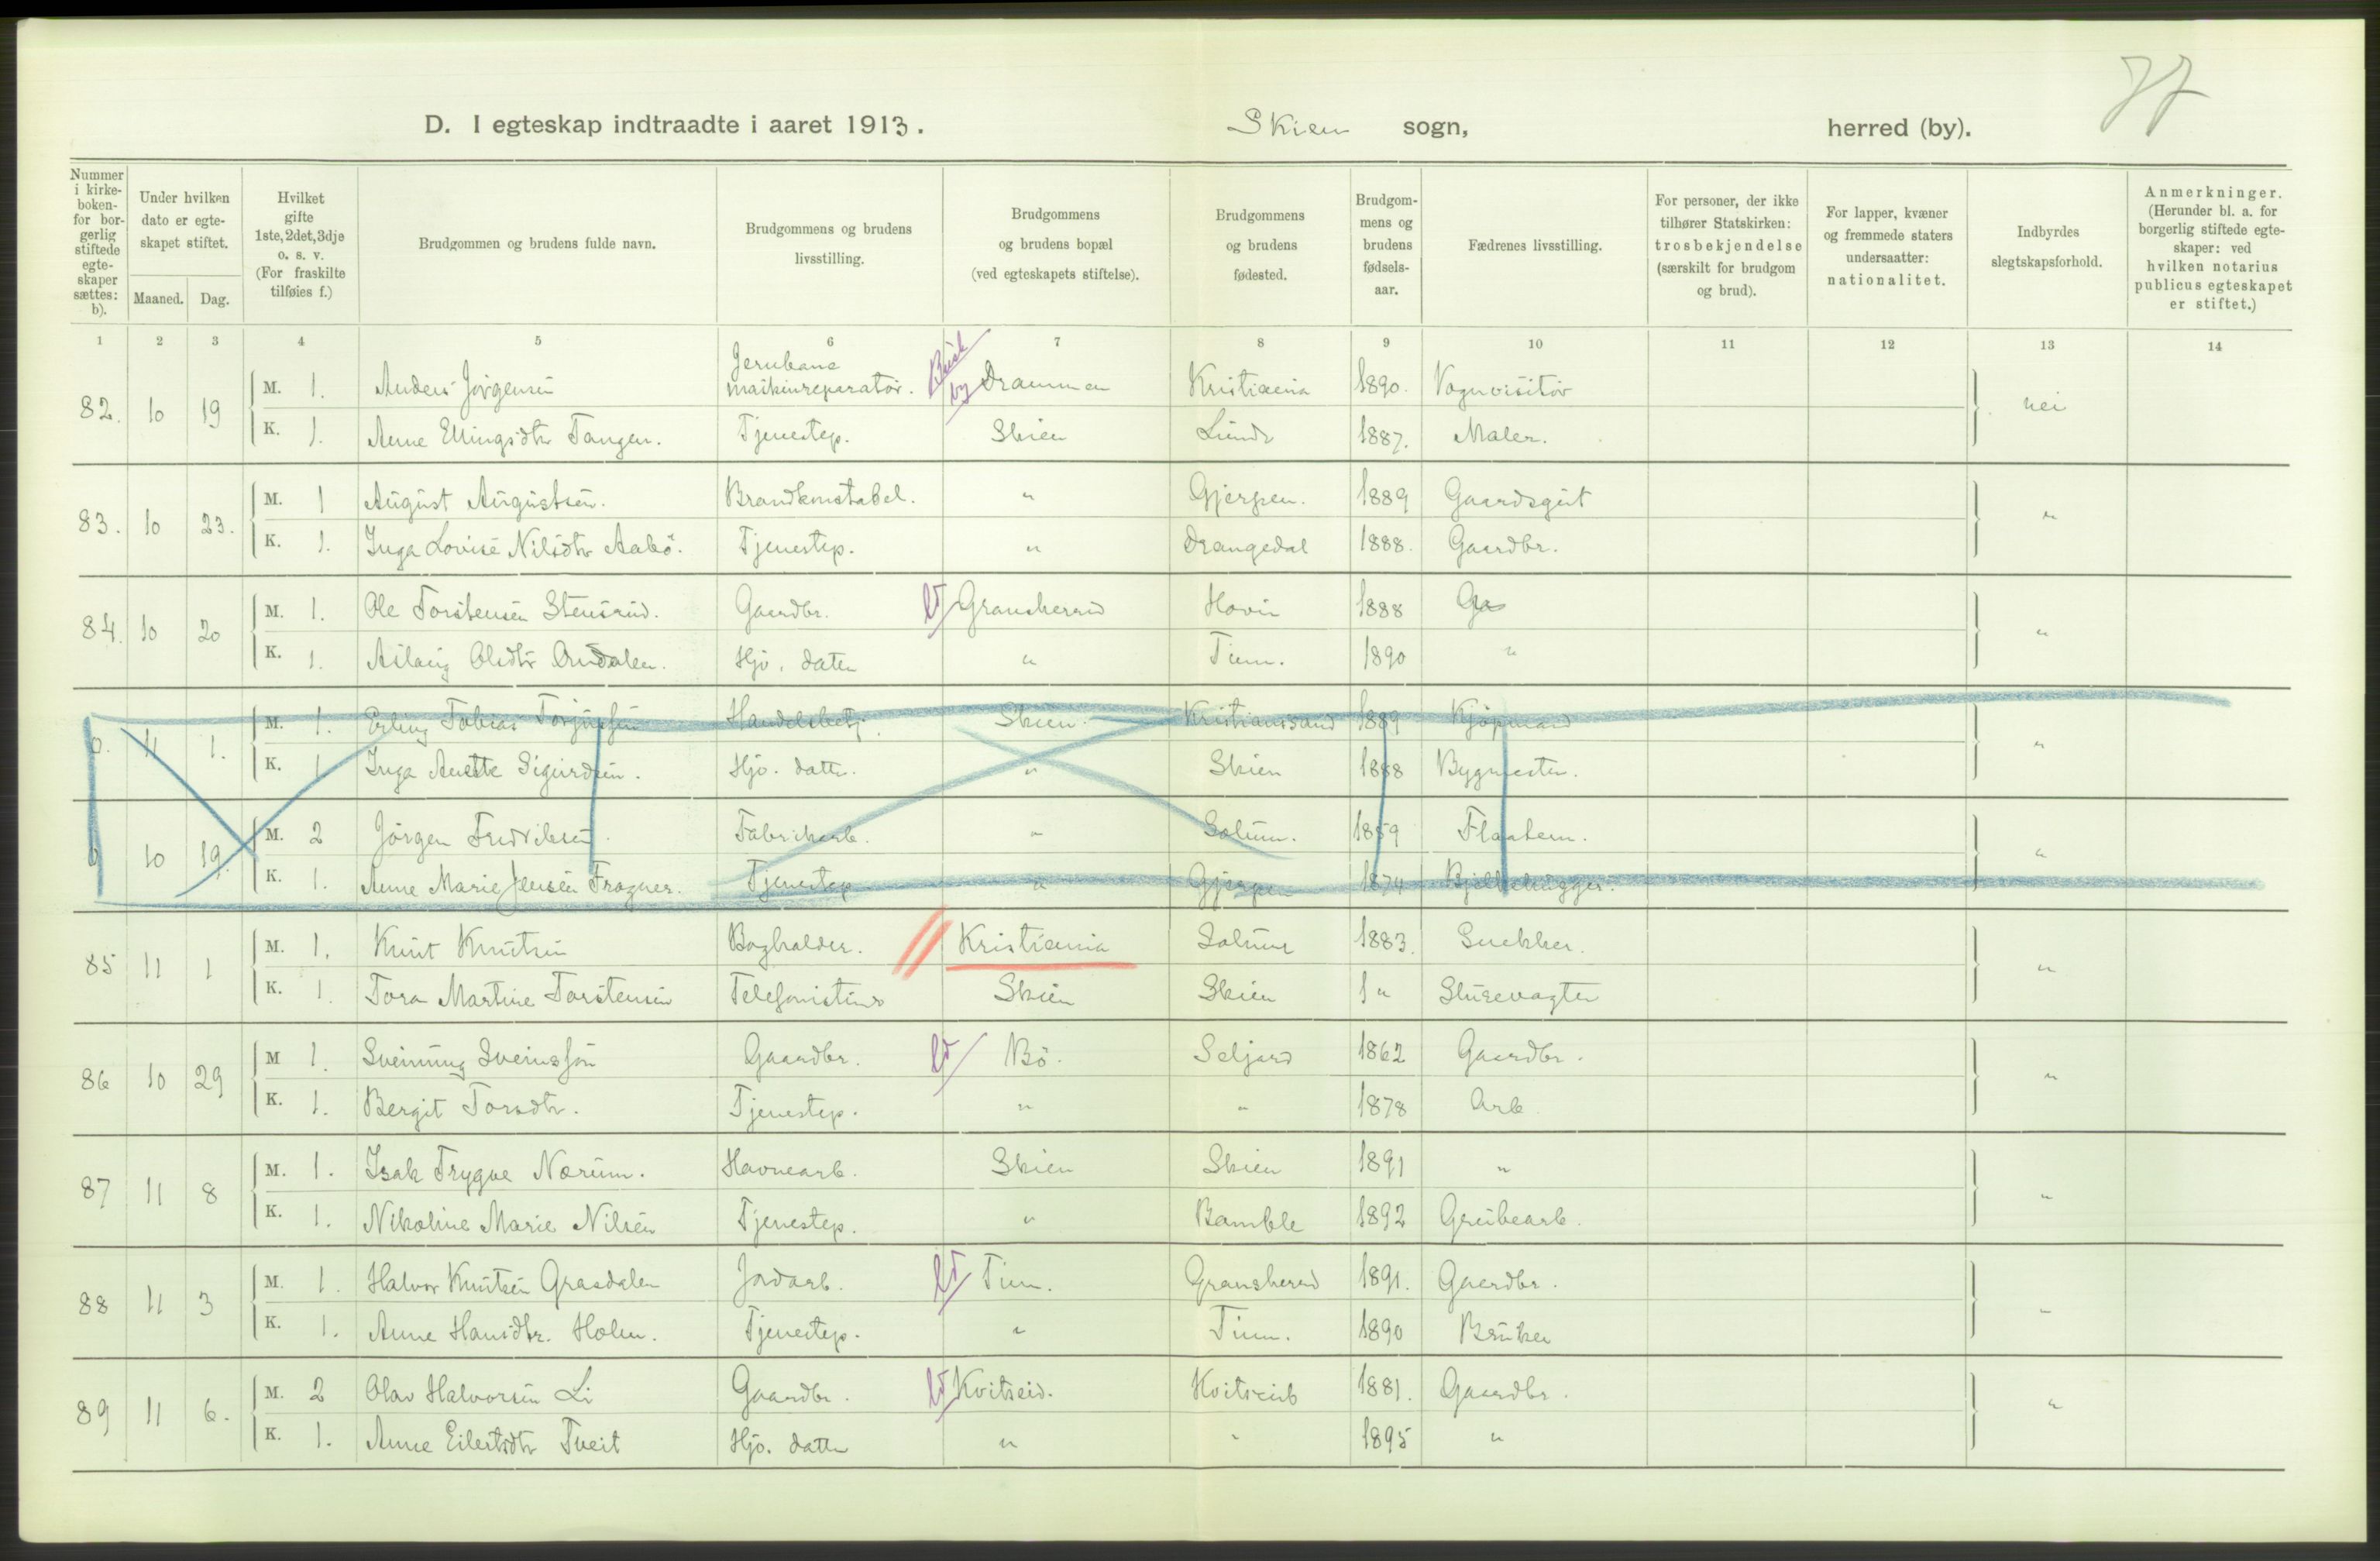 77
D. I egteskap indtraadte i aaret 1913. Skien sogn, herred (by).
Nummer i kirke-boken- for bor-gerlig stiftede egte-skaper sættes: b).
Under hvilken dato er egte-skapet stiftet.
Maaned. Dag.
Hvilket gifte 1ste, 2det, 3dje o. s. v. (For fraskilte tilføies f.)
Brudgommen og brudens fulde navn.
Brudgommens og brudens livsstilling.
Brudgommens og brudens bopæl (ved egteskapets stiftelse).
Brudgommens og brudens fødested.
Brudgom-mens og brudens fødsels-aar.
Fædrenes livsstilling.
For personer, der ikke tilhører Statskirken: trosbekjendelse (særskilt for brudgom og brud).
For lapper, kvæner og fremmede staters undersaatter: nationalitet.
Indbyrdes slegtskapsforhold.
Anmerkninger. (Herunder bl. a. for borgerlig stiftede egte-skaper: ved hvilken notarius publicus egteskapet er stiftet.)
1 2 3 4 5 6 7 8 9 10 11 12 13 14
82. 10 19 M. 1. Anders Jørgensen Jernbane maskinreparatør. Busk by Drammen Kristiania 1890. Vognvisitør nei
K. 1. Anne Ellingsdtr Tangen. Tjenestep. Skien Lunde 1887. Maler.
83. 10 23. M. 1 August Augustsen. Brandkonstabel. " Gjerpen. 1889 Gaardsgut "
K. 1. Inga Lovise Nilsdtr Aabö. Tjenestep. " Drangedal 1888. Gaardbr.
84. 10 20 M. 1. Ole Torstensen Stensrud. Gaardbr. Gransherred Hovin 1888 Ga "
K. 1. Aslaug Olsdtr Ondalen. Hjv. datter " Tinn. 1890 "
11 1. M. 1. Erling Tobias Torjussen Handelsbetj. Skien. Kristianssand 1889 Kjøpmand "
K. 1 Inga Anette Sigurdsen. Hjv. datter. " Skien 1888 Bygmester.
10 19. M. 2 Jörgen Fredriksen. Fabrikarb. " Solum. 1859 Flaatem. "
K. 1. Anne Marie Jensen Frogner. Tjenestep " Gjerpen 1874 Bjelkehugger.
85 11 1 M. 1. Knut Knutsen Bogholder. Kristiania Solum 1883. Snekker. "
K. 1. Tora Martine Torstensen Telefonistinde Skien Skien 1 " Slusevagter
86 10 29 M 1. Sveinung Sveinsson Gaardbr. Bö. Seljord 1862 Gaardbr. "
K. 1. Bergit Torsdtr. Tjenestep. " " 1878 Arb.
87 11 8 M. 1. Isak Trygve Nærum. Havnearb. Skien Skien 1891 " "
K. 1. Nikoline Marie Nilsen Tjenestep. " Bamble 1892 Grubearb.
88 11 3 M. 1. Halvor Knutsen Grasdalen Jordarb. Tinn. Gransherred 1891. Gaardbr. "
K. 1. Anne Hansdtr. Holen. Tjenestep. " Tinn. 1890 Bruker
89 11 6. M. 2 Olav Halvorsen Li Gaardbr. Kvitseid. Kvitseid 1881. Gaardbr. "
K. 1. Anne Eilertsdtr Tveit Hjv. datter " " 1895 "